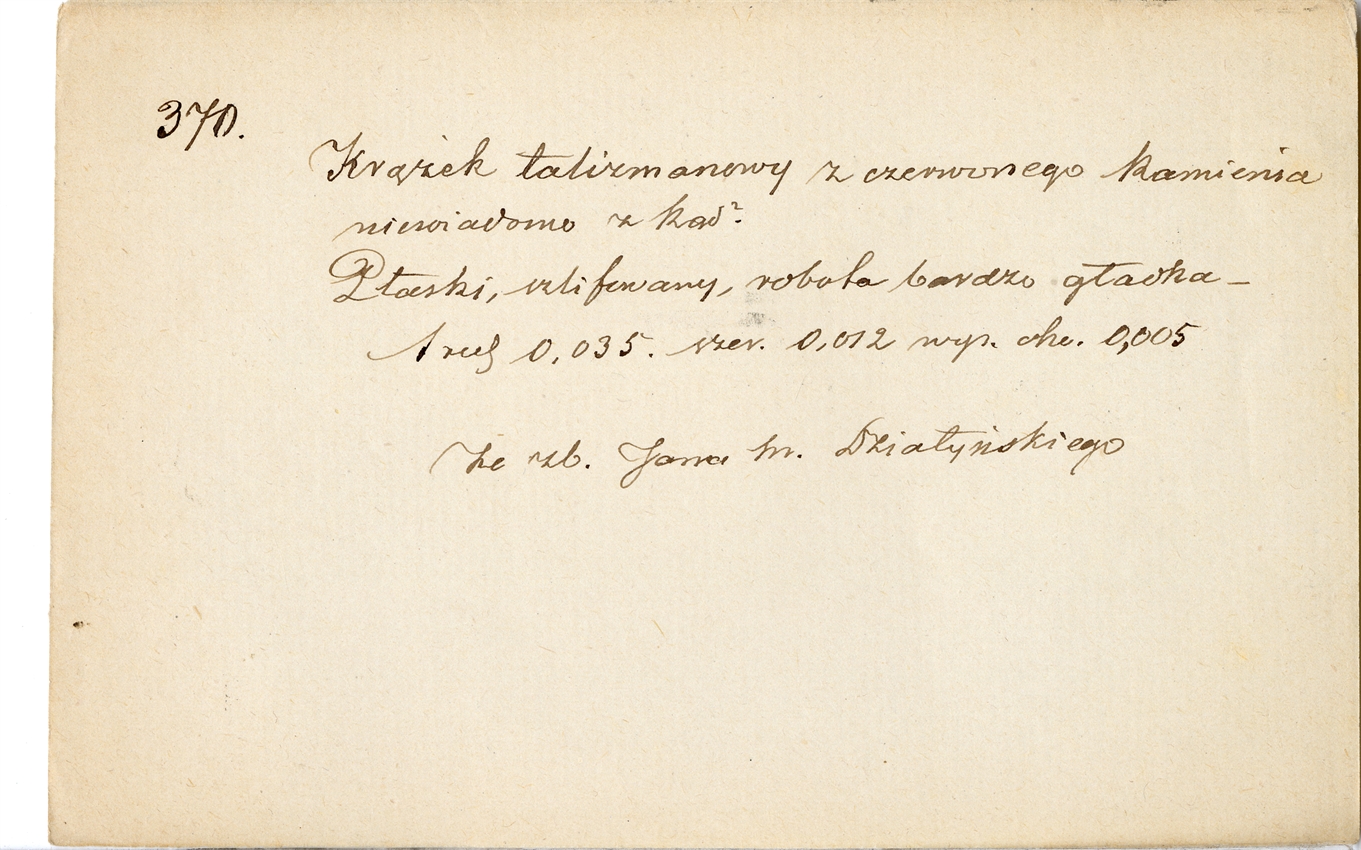 370.
Krążek talizmanowy z czerwonego kamienia
niewiadomo z kąd?
Płaski, szlifowany, robota bardzo gładka –
0,035. szer. 0,012 wys. oko. 0,005
Ze zb. Jana hr. Działyńskiego